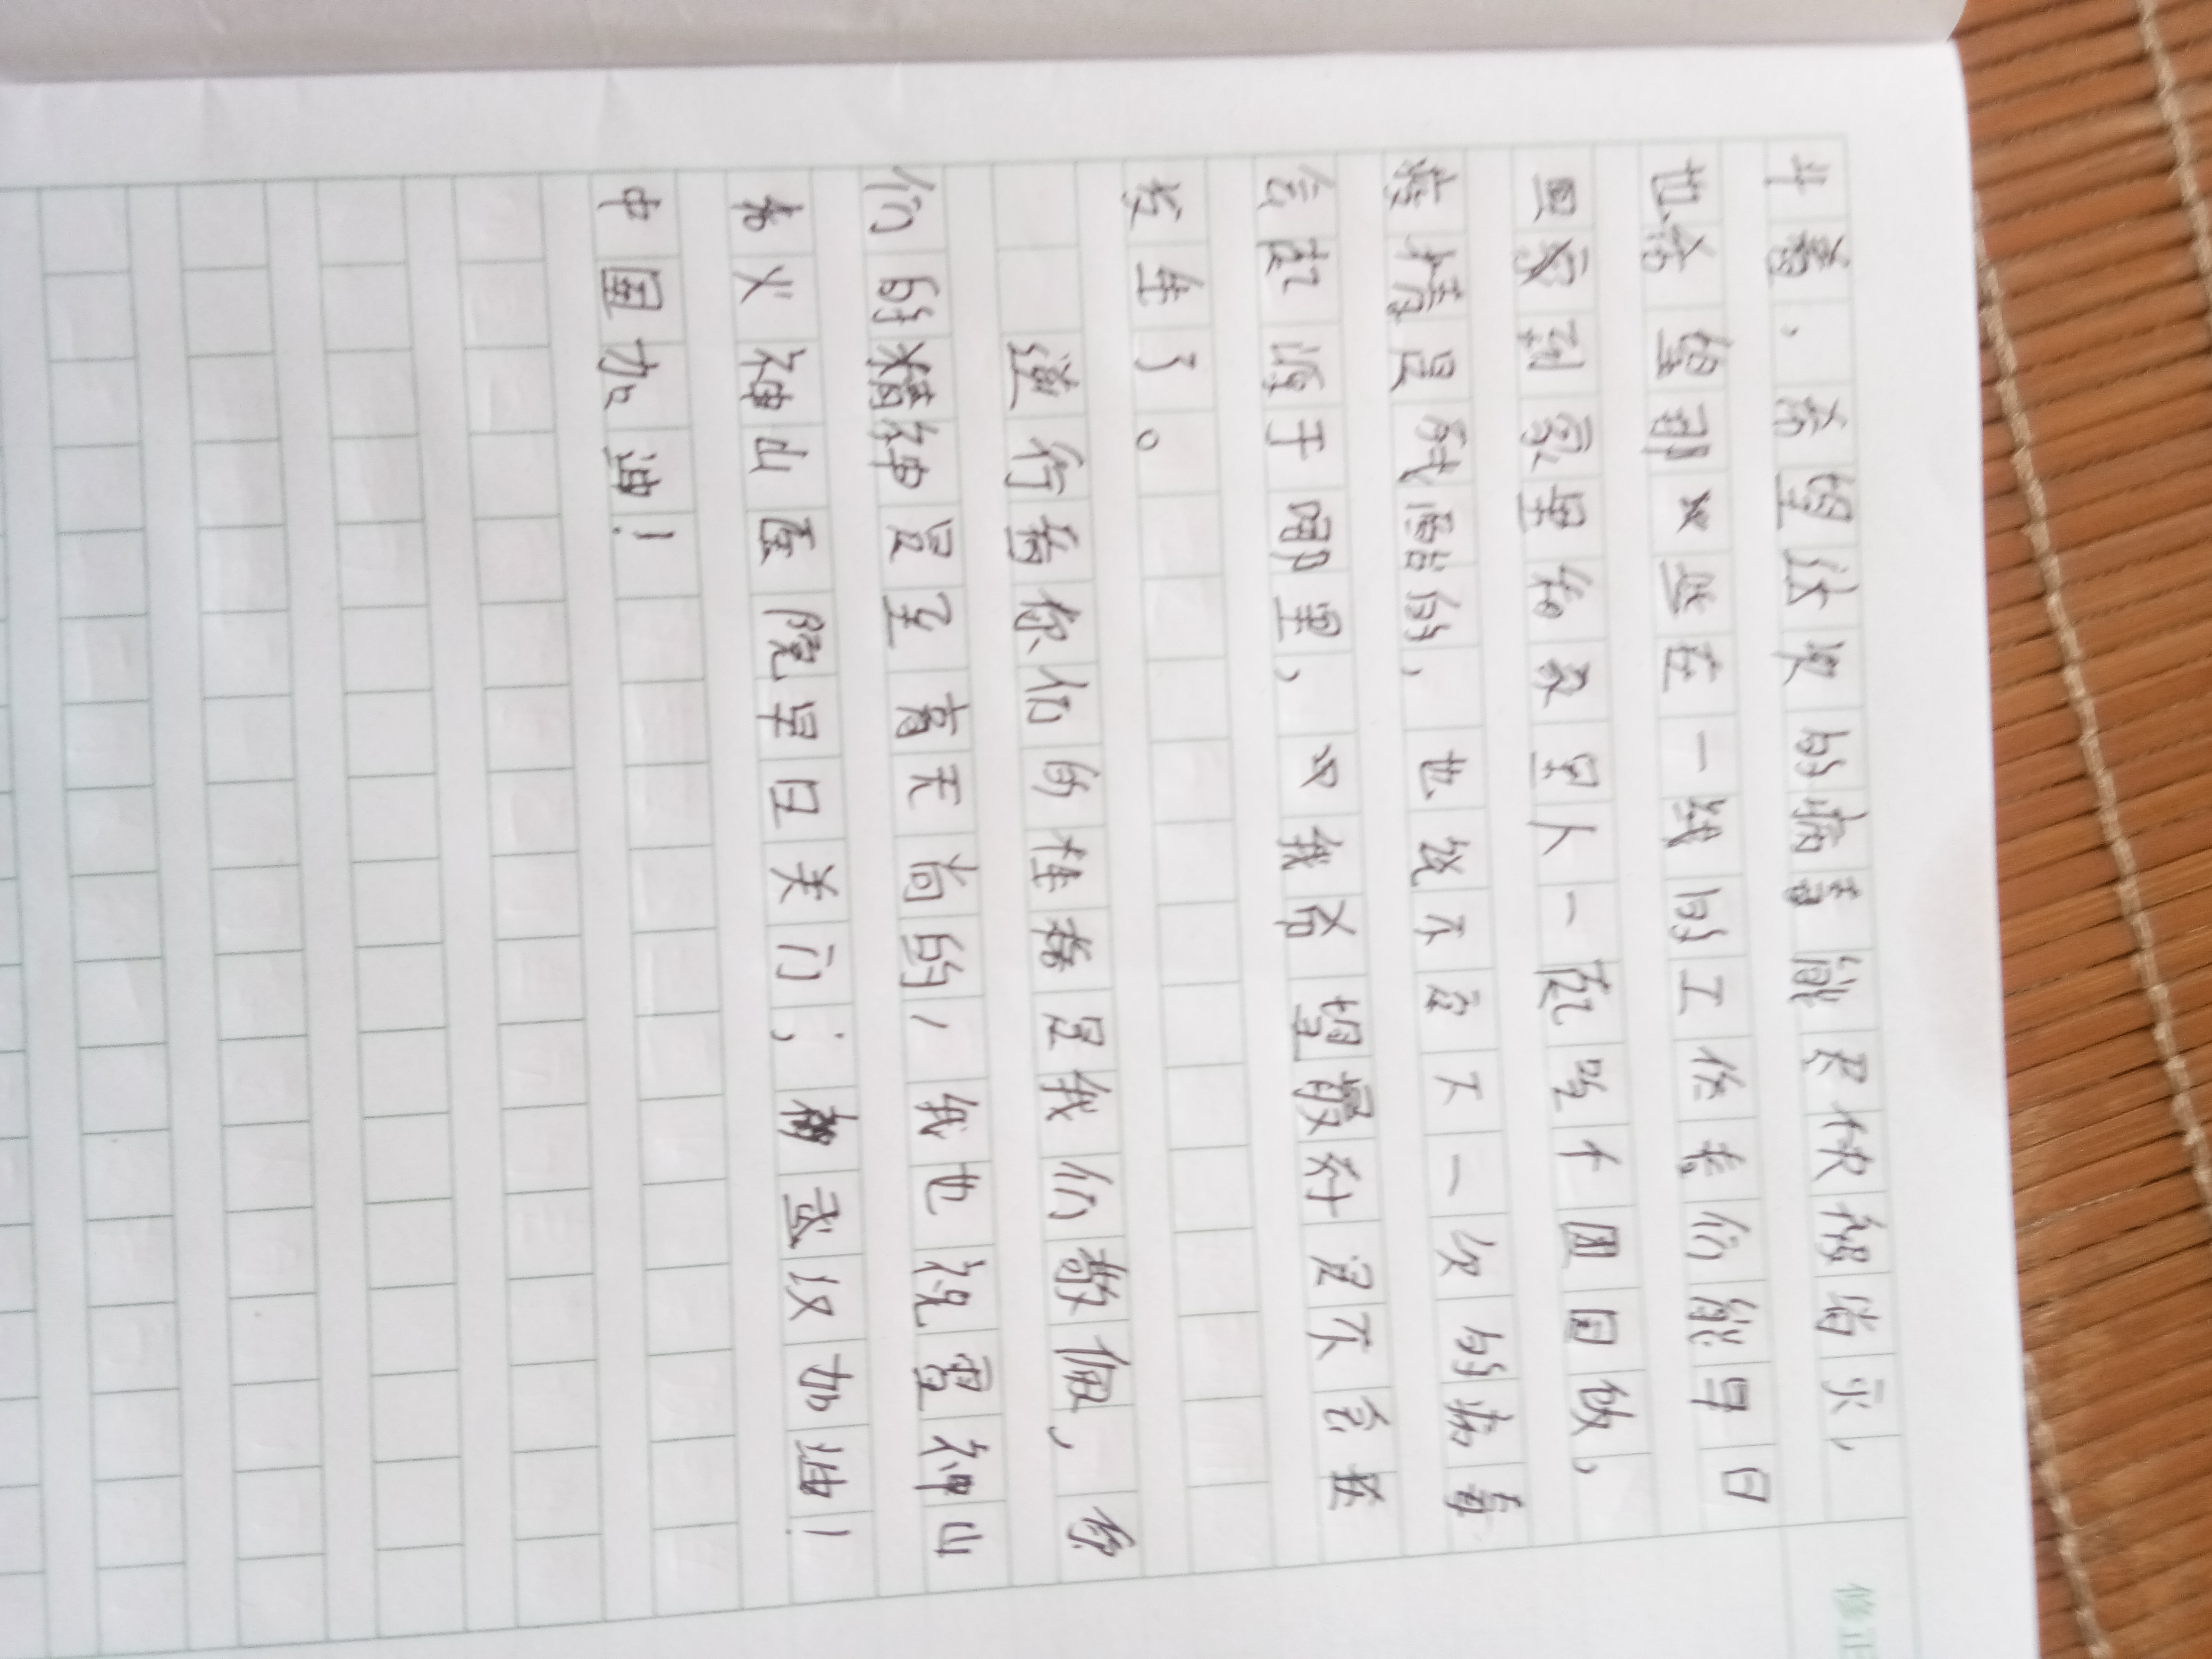 斗着，希望这次的病毒能尽快被消灭，
也希望那些在一线的工作者们能早日
回到家里和家里人一起吃个团圆饭，
疫情是残酷的，也说不定下一次的病毒
会起源于哪里，我希望最好是不会在
发生了。
逆行着你们的是我们敬佩，你
们的精神是至高无尚的，我也祝雷神山
火神山医院早日关门；武汉加油！
中国加油！
修正